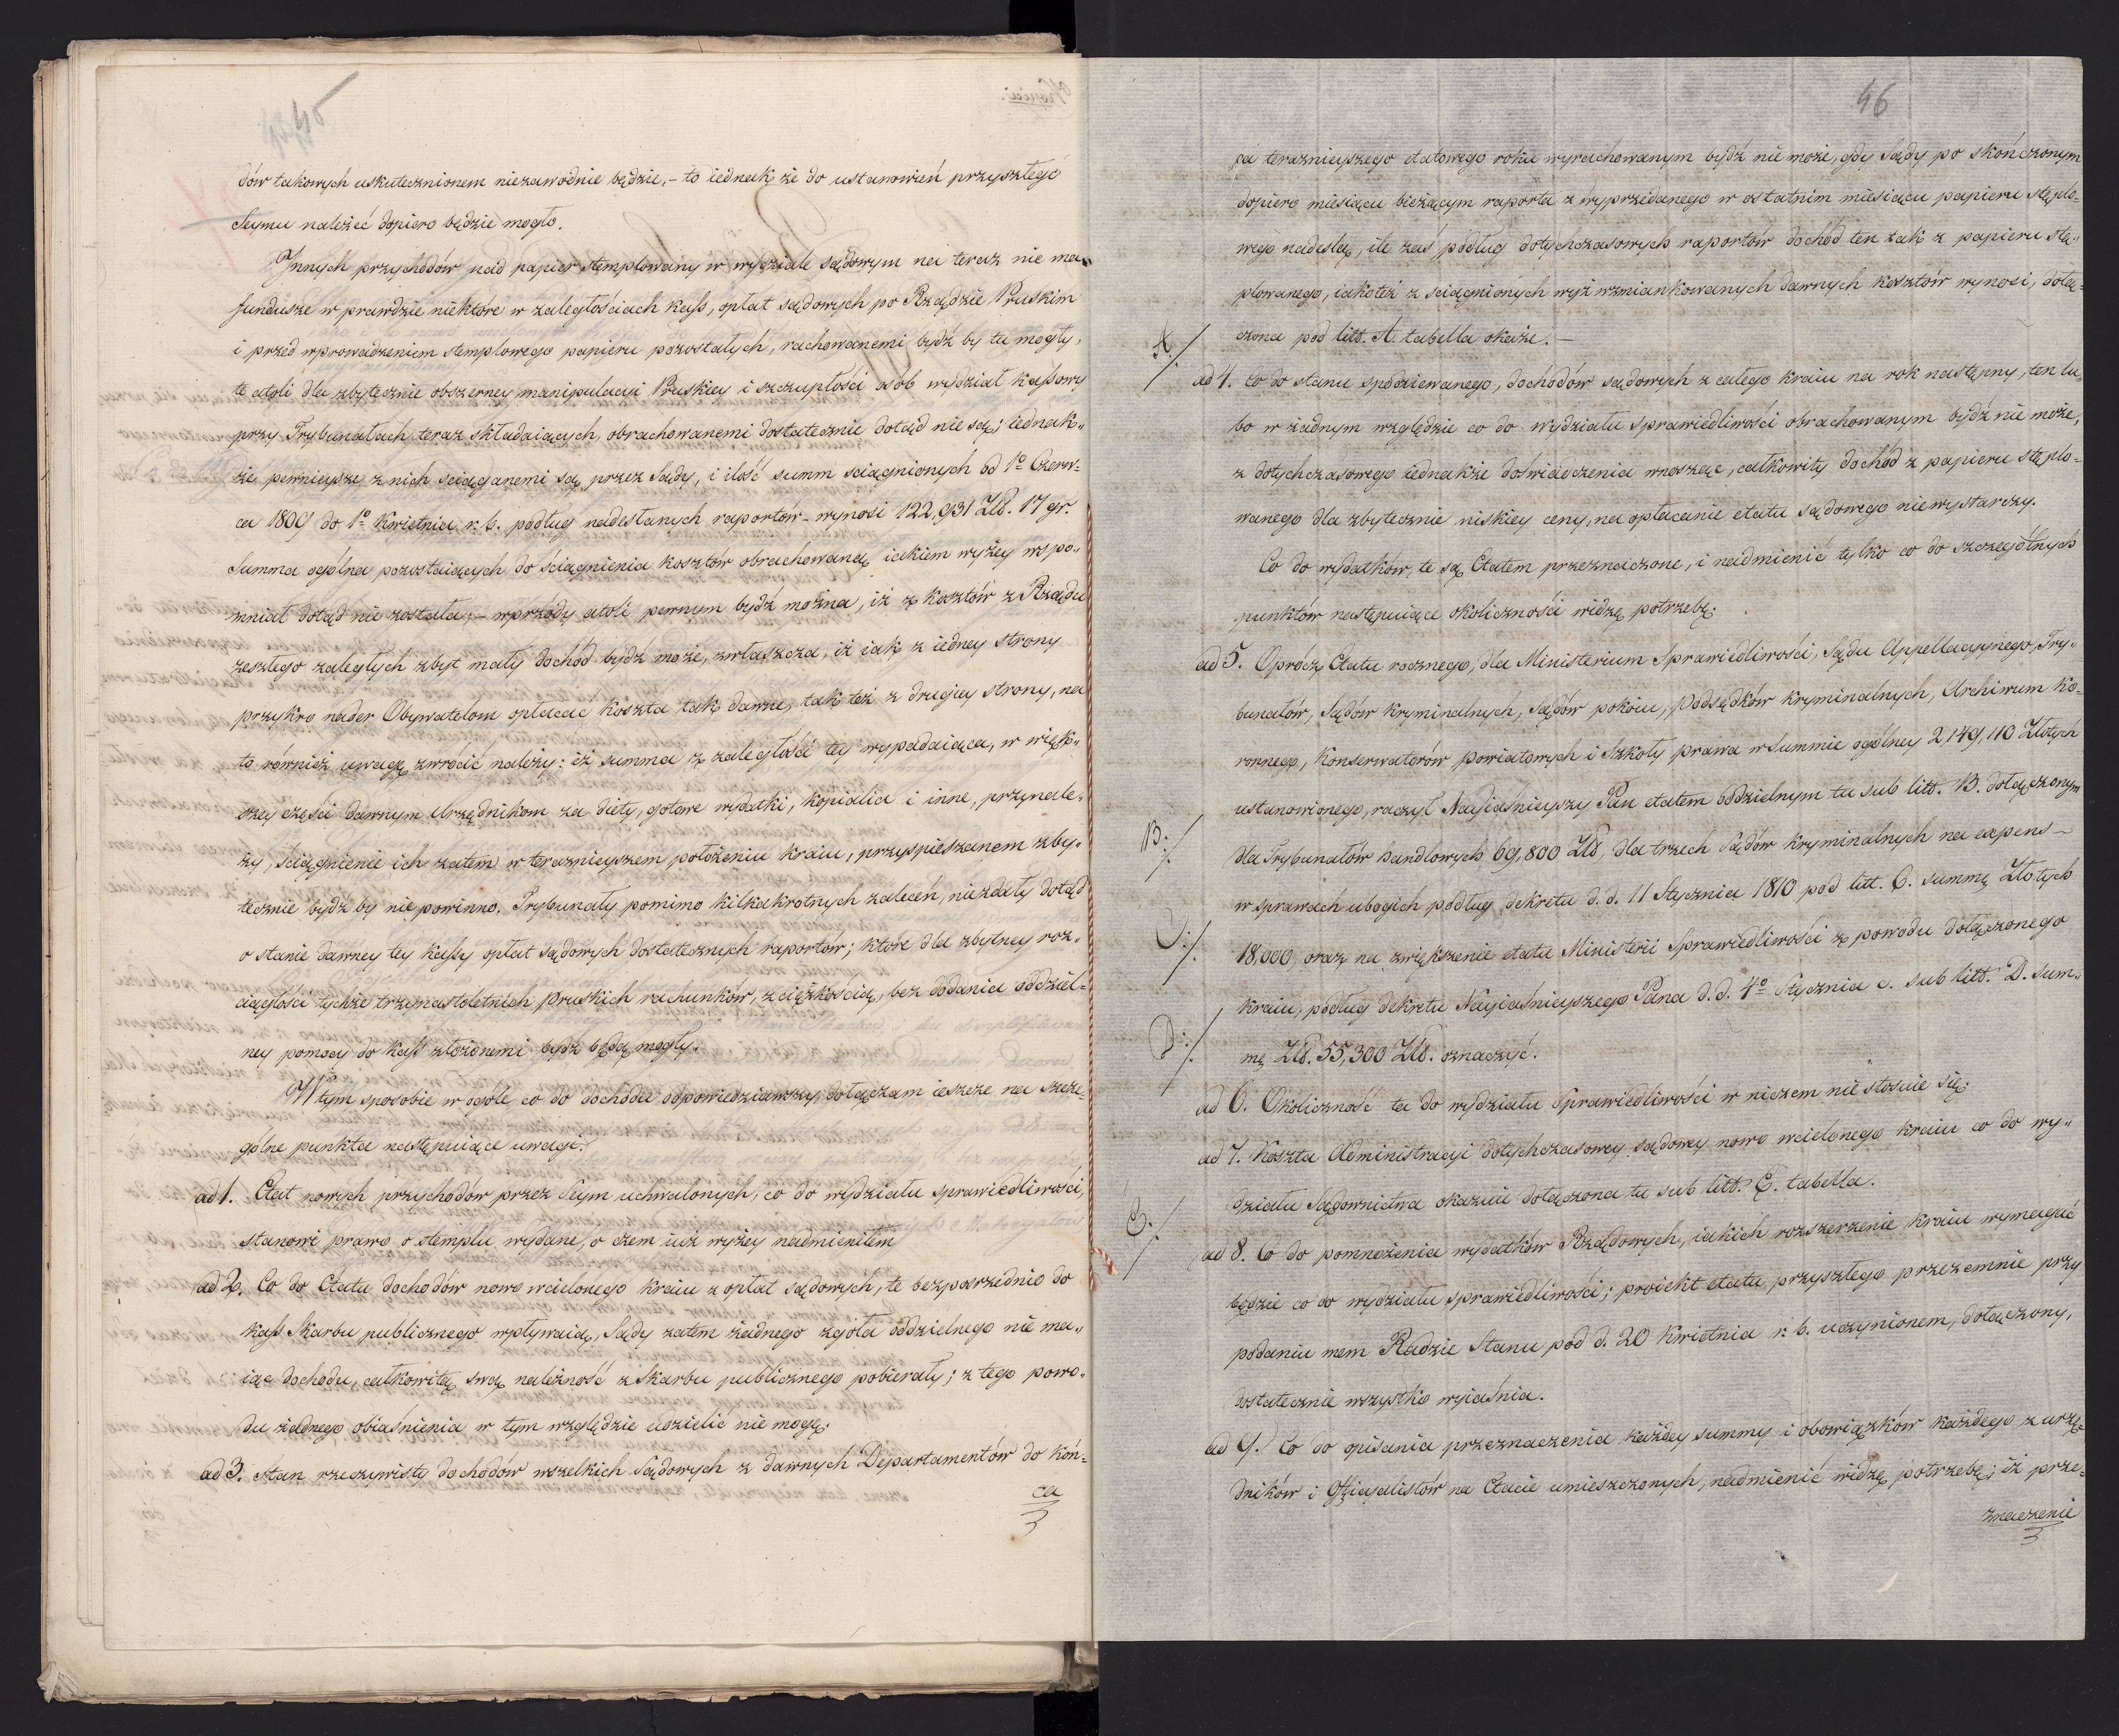 45
dów takowych uskutecznionem niezawodnie będzie, – to iednak że do ustanowień przyszłego
Seymu należeć dopiero będzie mogło.
Innych przychodów nad papier stemplowany w wydziale sądowym na teraz nie ma„
fundusze w prawdzie niektóre w zaległościach kass, opłat sądowych po Rządzie Pruskim
i przed wprowadzeniem stemplowego papieru pozostałych, rachowanemi bydź by tu mogły,
te atoli dla zbytecznie obszerney manipulacyi Pruskiey i szczupłości osób wydział kassowy
przy Trybunałach teraz składaiących, obrachowanemi dostatecznie dotąd nie są; iednak„
że pewnieysze z nich sciąganemi są przez Sądy, i ilość summ sciągnionych od 1º Czerw=
ca 1809 do 1º Kwietnia r. b. podług nadesłanych raportów – wynosi 122,931 Złł. 17 gr.
Summa ogólna pozostaiących do ściągnienia kosztów obrachowaną iakiem wyżey wspo„
mniał dotąd nie została; – wprzódy atoli pewnym bydź można, iż z kosztów z Rządu
zeszłego zaległych zbyt mały dochód bydź może, zwłaszcza, iż iak z iedney strony
przykro nader Obywatelom opłacać koszta tak dawne, tak też z drugiey strony, na
to również uwagę zwrócić należy: iż summa z zaległości tey wypadaiąca, w więk„
szey części dawnym Urzędnikom za diety, gotowe wydatki, kopialia i inne, przynale„
ży, ściągnienie ich zatem w terazniejszem położeniu kraiu, przyspieszanem zby„
tecznie bydź by nie powinno. Trybunały pomimo kilkakrotnych zaleceń, nie zdały dotąd
o stanie dawney tey kassy opłat sądowych dostatecznych raportów; które dla zbytney roz„
ciągłości tychże trzynastoletnich pruskich rachunków, z ciężkością, bez dodania oddziel=
ney pomocy do kass złożonemi bydź będą mogły.
W tym sposobie w ogóle co do dochodu odpowiedziawszy, dołączam ieszcze na szcze„
gólne punkta następuiące uwagi:
ad 1. Etat nowych przychodów przez Seym uchwalonych, co do wydziału sprawiedliwości,
stanowi prawo o stemplu wydane, o czem iuż wyżey nadmieniłem
ad 2. Co do Etatu dochodów nowo wcielonego kraiu z opłat sądowych, te bezpośrzednio do
kass Skarbu publicznego wpływaią, Sądy zatem żadnego zgoła oddzielnego nie ma„
iąc dochodu, całkowitą swą należność z Skarbu publicznego pobierały; z tego powo„
du żadnego obiaśnienia w tym względzie udzielić nie mogę.
ad 3. Stan rzeczywisty dochodów wszelkich Sądowych z dawnych Departamentów do koń=
ca
46
ca terazniejszego etatowego roku wyrachowanym bydź nie może, gdy Sądy po skończonym
dopiero miesiącu bieżącym raporta z wyprzedanego w ostatnim miesiącu papieru stęplo=
wego nadeslą, ile zaś podług dotychczasowych raportów dochód ten tak z papieru stę„
plowanego, iakoteż z sciągnionych wyż wzmiankowanych dawnych kosztów wynosi, dołą=
A./. czona pod litt. A. tabella okaże. –
ad 4. co do stanu spodziewanego, dochodów sądowych z całego kraiu na rok następny, ten lu=
bo w żadnym względzie co do wydziału sprawiedliwości obrachowanym bydź nie może,
z dotychczasowego iednakże doświadczenia wnosząc, całkowity dochód z papieru stęplo=
wanego dla zbytecznie niskiey ceny, na opłacanie etatu sądowego niewystarczy.
Co do wydatków, te są Etatem przeznaczone, i nadmienić tylko co do szczególnych
punktów następuiące okoliczności widzę potrzebę:
ad 5. Oprócz Etatu rocznego, dla Ministerium Sprawiedliwości, Sądu Appellacyjnego, Try„
bunałów, Sądów kryminalnych, Sądów pokoiu, Podsędków kryminalnych, Archiwum Ko=
ronnego, Konserwatorów powiatowych i Szkoły prawa w Summie ogólney 2,149,110 Złotych
B:/. ustanowionego, raczył Nayiaśnieyszy Pan etatem oddzielnym tu sub litt. B. dołączonym
dla Trybunałów handlowych 69,800 Złł, dla trzech Sądów kryminalnych na expens –
C:/. w sprawach ubogich podług dekretu d. d. 11 Stycznia 1810 pod litt. C. summę Złotych
18,000, oraz na zwiększenie etatu Ministerii Sprawiedliwości z powodu dołączonego
kraiu, podług dekretu Nayiaśnieyszego Pana d. d. 4º Stycznia c. sub litt. D. sum„
D:/. mę Złł. 55,300 Złł. oznaczyć.
ad 6. Okoliczność ta do wydziału sprawiedliwości w niczem nie stosuie się.
ad 7. Koszta Administracyi dotychczasowey sądowey nowo wcielonego kraiu co do wy„
E./. działu Sądownictwa okazuie dołączona tu sub litt. E. tabella.
ad 8. Co do pomnożenia wydatków Rządowych, iakich rozszerzenie kraiu wymagać
będzie co do wydziału sprawiedliwości; proiekt etatu przyszłego przezemnie przy
podaniu mem Radzie Stanu pod d. 20 Kwietnia r. b. uczynionem, dołączony,
dostatecznie wszystko wyiaśnia.
ad 9. Co do opisania przeznaczenia każdey summy i obowiązków każdego z urzę=
dników i Officyalistów na Etacie umieszczonych, nadmienić widzę potrzebę; iż prze=
znaczenie